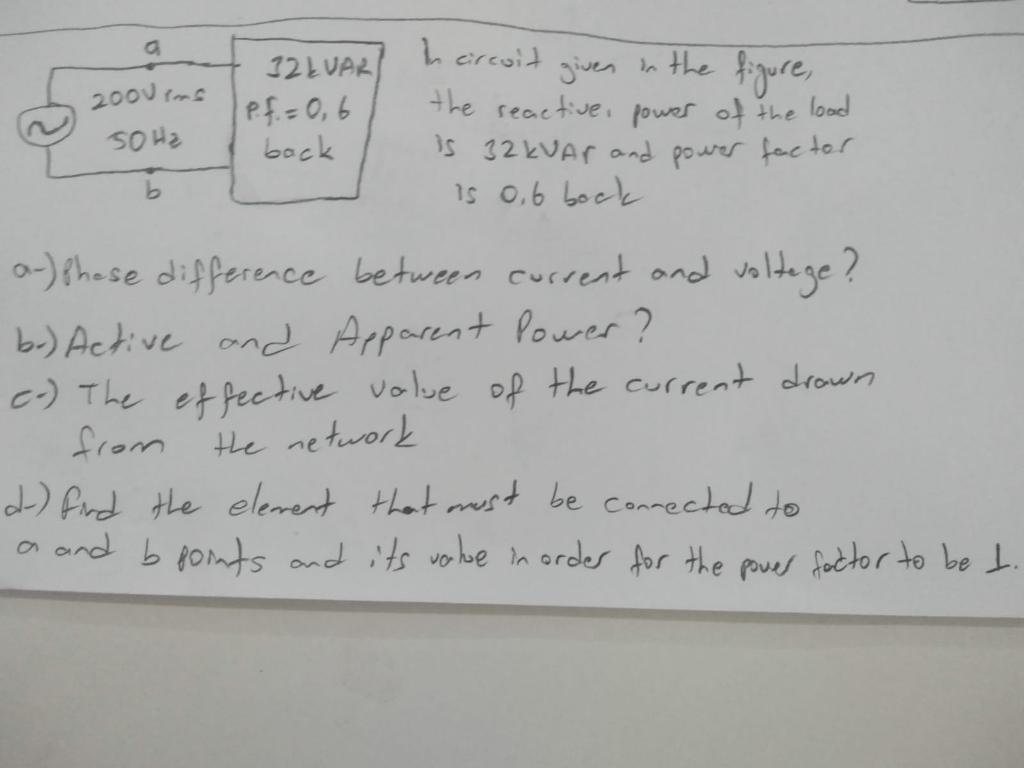 a
200V rms
50 Hz
b
32kVAR
P.f.=0,6
back
In circuit given in the figure,
the reactive. power of the load
is 32kVAr and power factor
is 0,6 back
a-) Phase difference between current and voltage?
b-) Active and Apparent Power?
c-) The effective value of the current drawn
from the network
d-) find the element that must be connected to
a and b points and its value in order for the power factor to be 1.